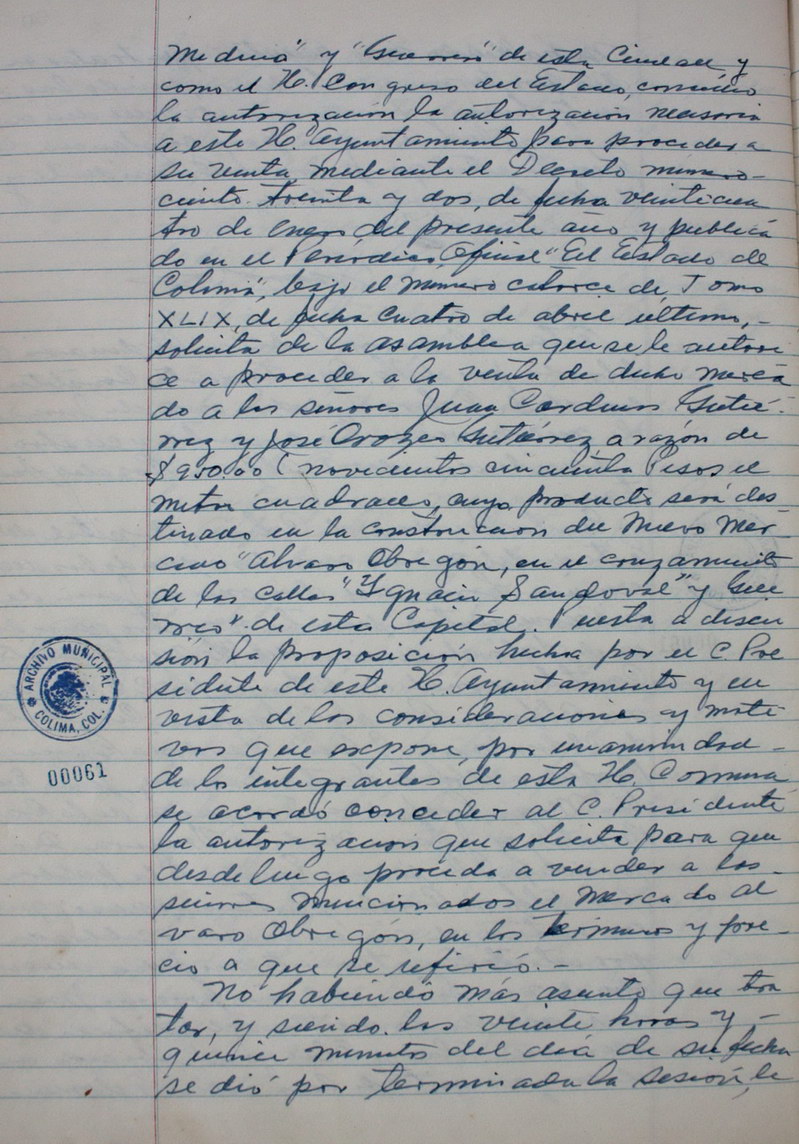 Medina" y "Guerrero" de esta Ciudad y
como el H. Congreso del Estado, concedio
la autorización la autorización necesaria
a este H. Ayuntamiento para proceder a
su venta, mediante el Decreto número
ciento treinta y dos, de fecha veinticua
tro de enero del presente año y publica
do en el Periódico Oficial "El Estado de
Colima", bajo el número catorce de Tomo
XLIX, de fecha cuatro de abril último, -
solicita de la asamblea que se le autori
ce a proceder a la venta de dicho merca
do a los señores Juan Cardenas Gutié-
rrez y José Orozco Gutiérrez a razón de
$950.00 (novecientos cincuenta Pesos el
metro cuadrado, cuyo producto será des
tinado en la construcion del Nuevo Mer-
cado "Alvaro Obregón, en el cruzamiento
de las calles "Ygnacio Sandoval" y Gue
rrero". de esta Capital. Puesta a discu
sión la proposición hecha por el C. Pre
sidente de este H. Ayuntamiento y en
vista de los consideraciones y moti
vos que expone, por unanimidad -
de los integrantes de esta H. Comuna
se acordó conceder al C. Presidente
la autorización que solicita para que
desde luego proceda a vender a los -
señores mencionados el Mercado Al
varo Obregón, en los términos y pre-
cio a que se refirió. -
No habiendo más asunto que tra
tar, y siendo las veinte horas y -
quince minutos del día de su fecha
se dió por terminada la sesión, le
ARCHIVO MUNICIPAL
COLIMA, COL.
00061